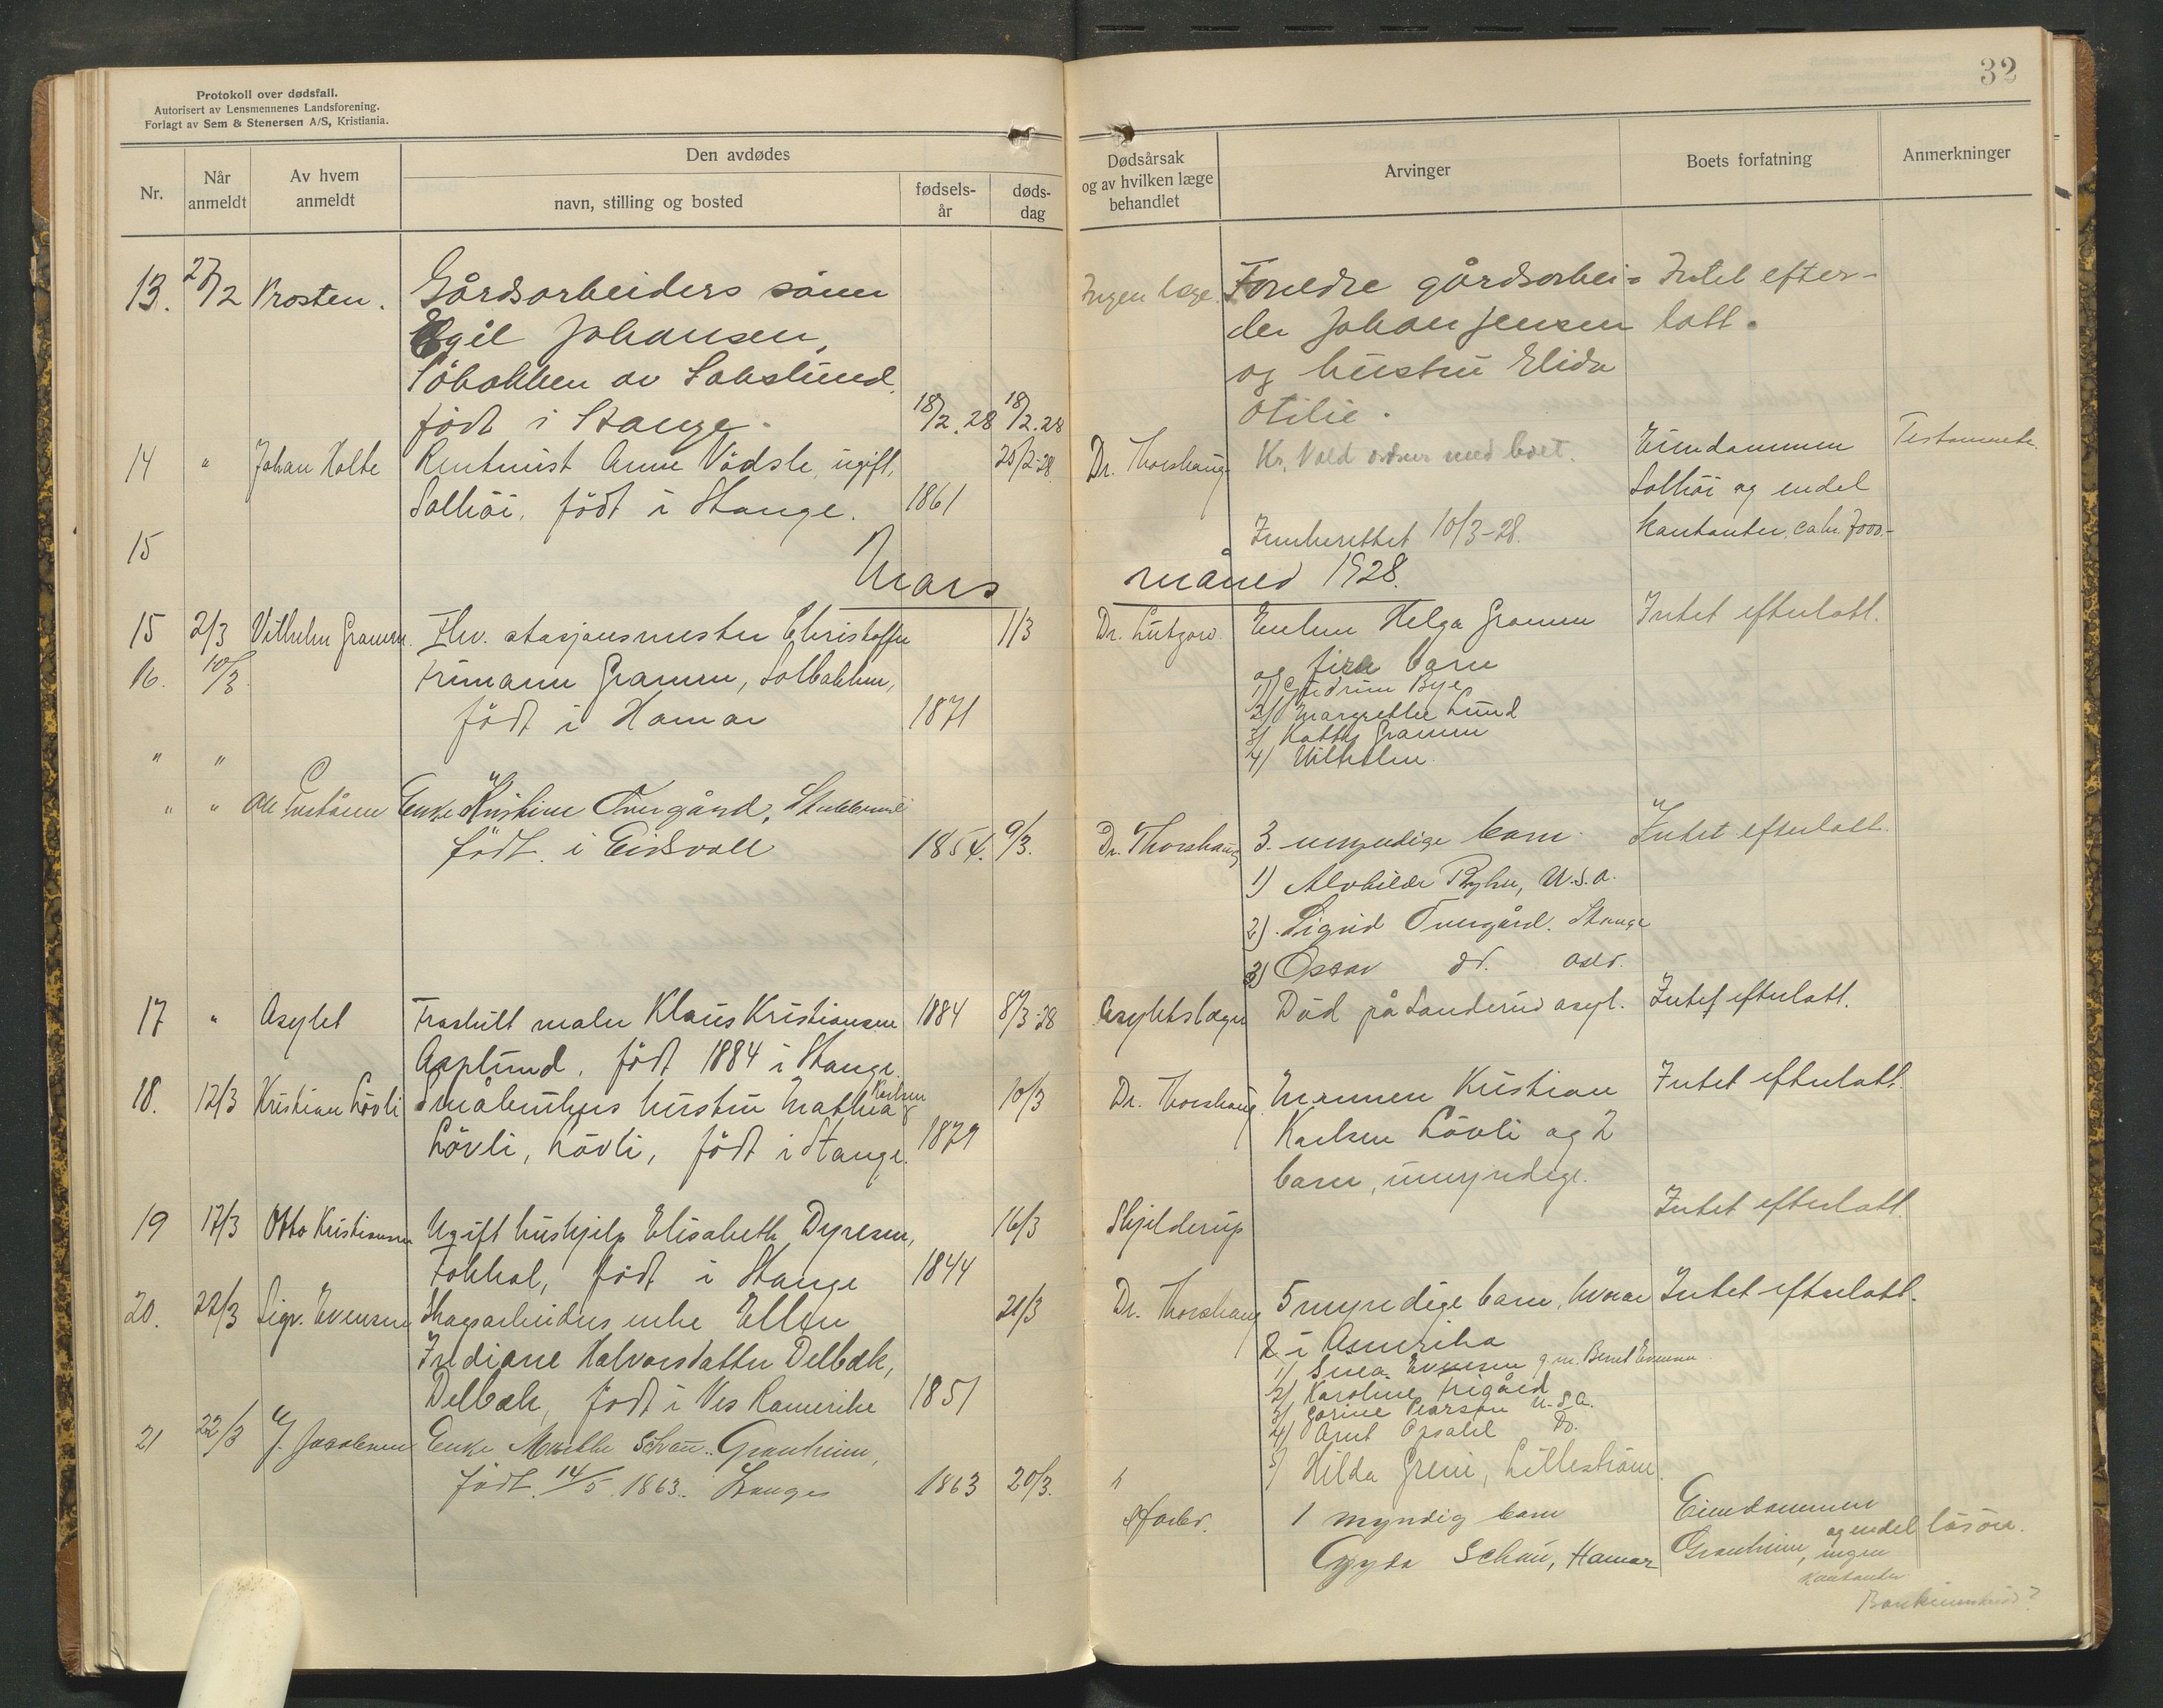 Protokoll over dødsfall.
Autorisert av Lensmennenes Landsforening.
Forlagt av Sem & Stenersen A/S, Kristiania.
32
Nr.
Når anmeldt
Av hvem anmeldt
Den avdødes
navn, stilling og bosted
fødsels-år
døds-dag
Dødsårsak og av hvilken læge behandlet
Arvinger
Boets forfatning
Anmerkninger
13. 27/2 Prosten. Gårdsarbeiders sönn Ingen læge. Foreldre gårdsarbei= Intet efter-
Egil Johansen, der Johan Jensen latt.
av og hustru Elida
födt i Stange. 18/2.28 18/2.28 Otilie.
14 " Johan Holte Rentenist Anne Vådsle, ugift, 25/2-28 Dr. Thorshaug Kr. Vold ordner med boet. Eiendommen Testamente
Solhöi, födt i Stange. 1861 Solhöi og endel
15 Innberettet 10/3-28. kontanter, ca kr. 7000.-
Mars måned 1928.
15 2/3 Vilhelm Gramm. Fhv. stasjonsmester Christoffer 1/3 Dr. Lützow. Enken Helga Gramm Intet efterlatt.
16. 10/3 Frimann Gramm, Solbakken, og fire barn
1) Gudrun Bye
födt i Hamar 1871 2) Margrethe Lund
3) Kathy Gramm
" " 4) Vilhelm
" " Enke Kristine Tveegård, födt i Eidsvoll 1854. 9/3. Dr. Thorshaug 3 umyndige barn. Intet efterlatt.
1) Alvhilde , U.S.A.
2) Sigrid Stange
3) Oscar do. Oslo.
17 " Asylet Fraskilt maler Klaus Kristiansen 1884 8/3-28 Asylets læge Död på Sanderud asyl. Intet efterlatt.
Asplund, födt 1884 i Stange.
18. 12/3 Kristian Lövli Småbrukers hustru Mathea Karlsen 10/3 Dr. Thorshaug. Mannen Kristian Intet efterlatt.
Lövli, Lövli, födt i Stange. 1879 Karlsen Lövli og 2
barn, umyndige.
19 17/3 Otto Kristiansen Ugift hushjelp Elisabeth Dyresen, 16/3 Skjelderup Intet efterlatt.
födt i Stange 1844
20. 22/3 Sigv. Evensen Skogsarbeiders enke Ellen 21/3 Dr. Thorshaug 5 myndige barn, hvorav Intet efterlatt.
Indiane Halvorsdatter Delbæk, 2 i Amerika
1) Evensen g.m. Bernt Evensen
Delbæk, födt i Ves Romerike 1851 2) Karoline
3) Carine Pearson U.S.A.
4) Arnt Opsahl Do.
5) Hilda Greni, Lilleström.
21 22/3 J. Jacobsen Enke Marthe Schau, Granheim,
födt 14/5 1863. Stange 1863 20/3. 1 myndig barn Eiendommen
Gyda Schau, Hamar Granheim, og endel lösöre.
ingen
kontanter
Bankinnskud?